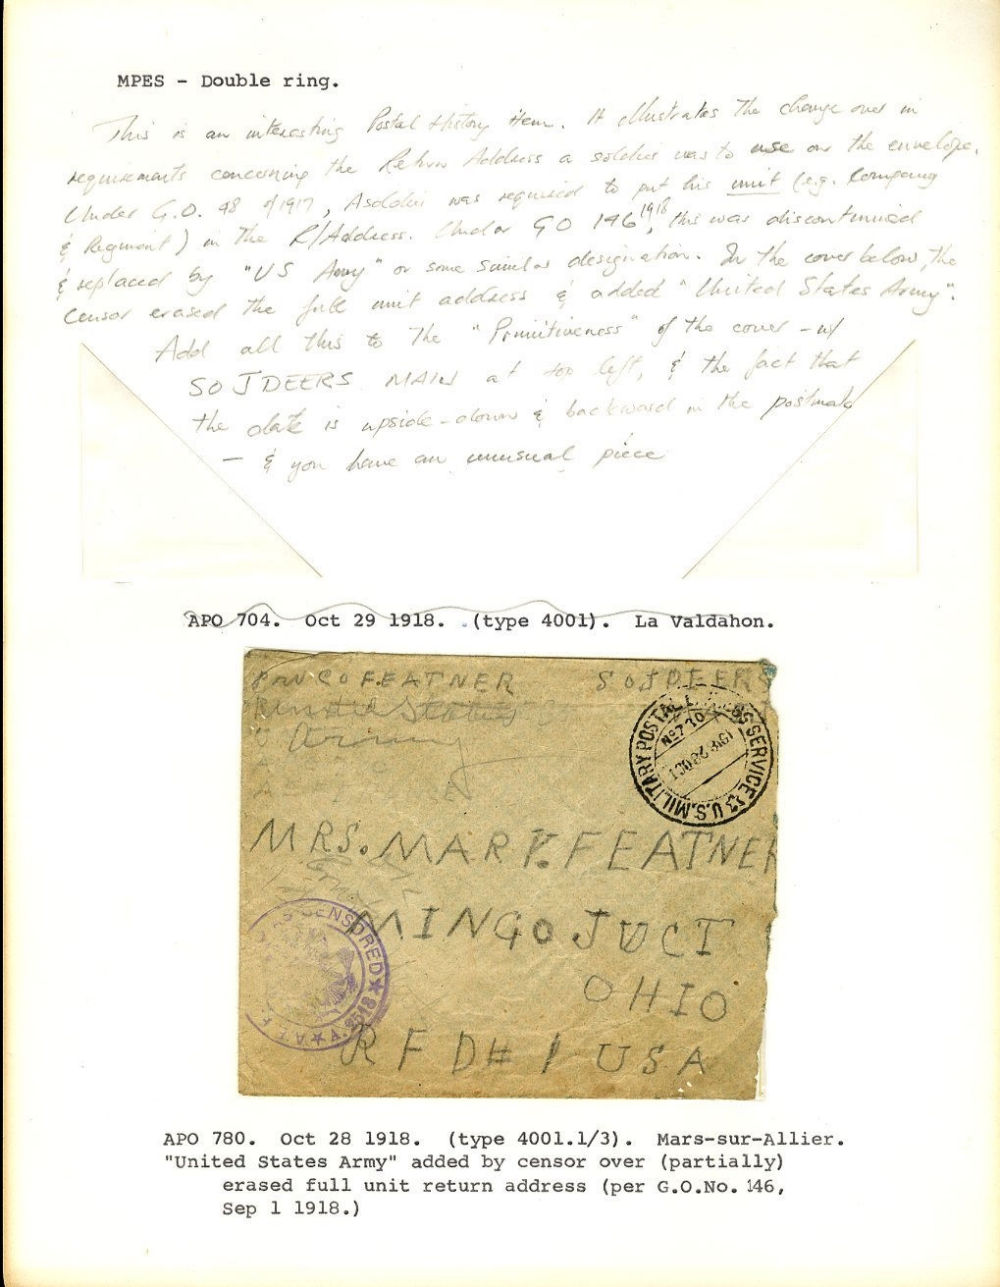 MPES - Double ring.
This is an interesting Postal History item. It illustrates the change over in
requirements concerning the Return Address a soldier was to use on the envelope.
Under G.O. 48 of 1917, A soldier was required to put his unit (e.g. Company
& Regiment) in the R/Address. Under GO 146 1918, this was discontinued
& replaced by "US Army" or some similar designation. In the cover below, the
Censor erased the full unit address & added "United States Army".
Add all this to the "Primitiveness" of the cover - w/
SOJDEERS MAIL at top left, & the fact that
the date is upside-down & backward in the postmark
- & you have an unusual piece
APO 704. Oct 29 1918. (type 4001). La Valdahon.
FEATNER SOJDEERS
United States
Army
U.S. MILITARY POSTAL EXPRESS SERVICE
No 710
MRS. MARK FEATNER
MINGO JUCT
OHIO
RFD # 1 USA
CENSORED
A.E.F.
APO 780. Oct 28 1918. (type 4001.1/3). Mars-sur-Allier.
"United States Army" added by censor over (partially)
erased full unit return address (per G.O.No. 146,
Sep 1 1918.)